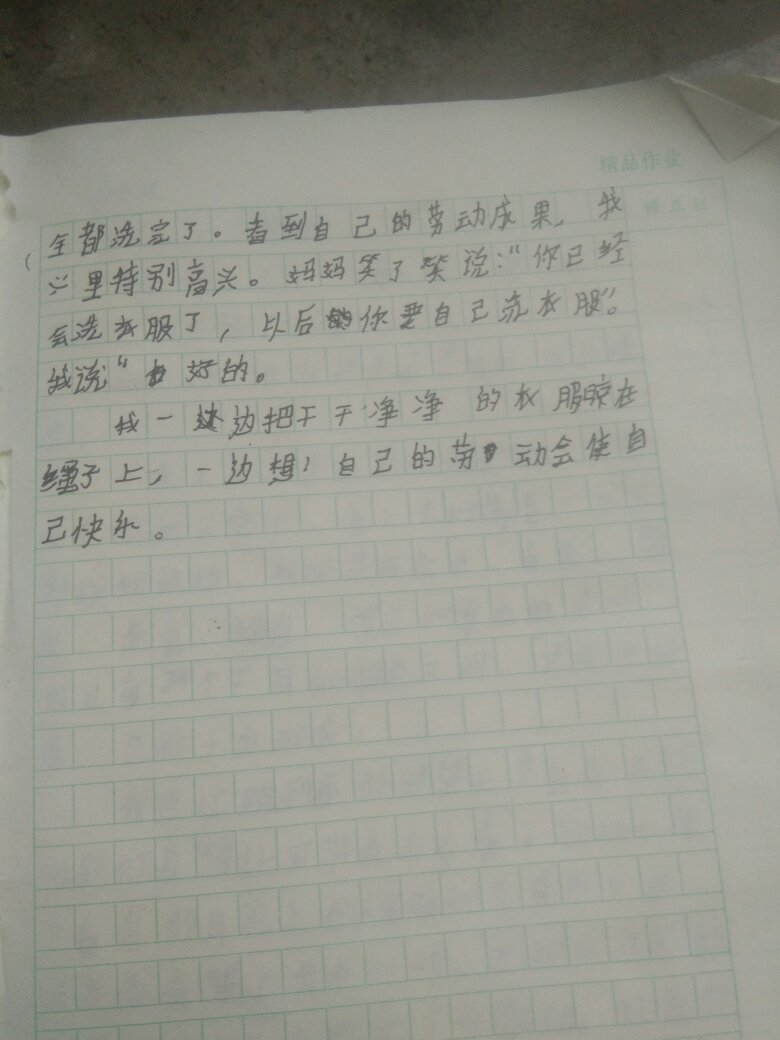 精品作业
修正栏
全都洗完了。看到自己的劳动成果，我
心里特别高兴。妈妈笑了笑说：“你已经
会洗衣服了，以后你要自己洗衣服”。
我说“好的。
我一边把干干净净的衣服晾在
绳子上，一边想：自己的劳动会使自
己快乐。